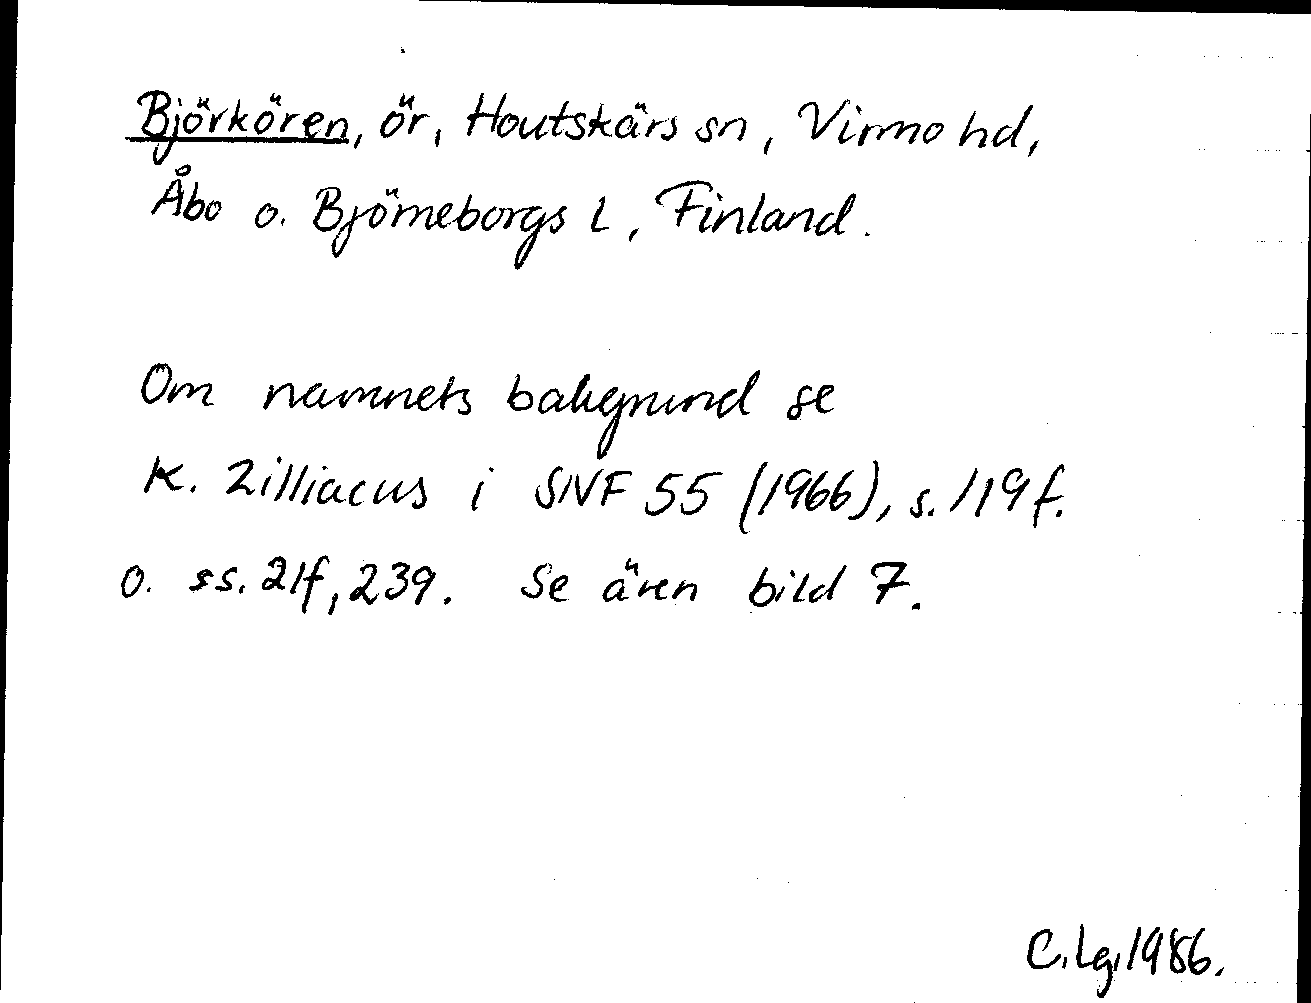 Björkören, ör, Houtskärs sn, Virmo hd,
Åbo o. Björneborgs L, Finland.
Om namnets bakgrund se
K. Zilliacus i SNF 55 (1966), s. 119 f.
o. ss. 21f, 239. Se även bild 7.
C. Lg. 1986.